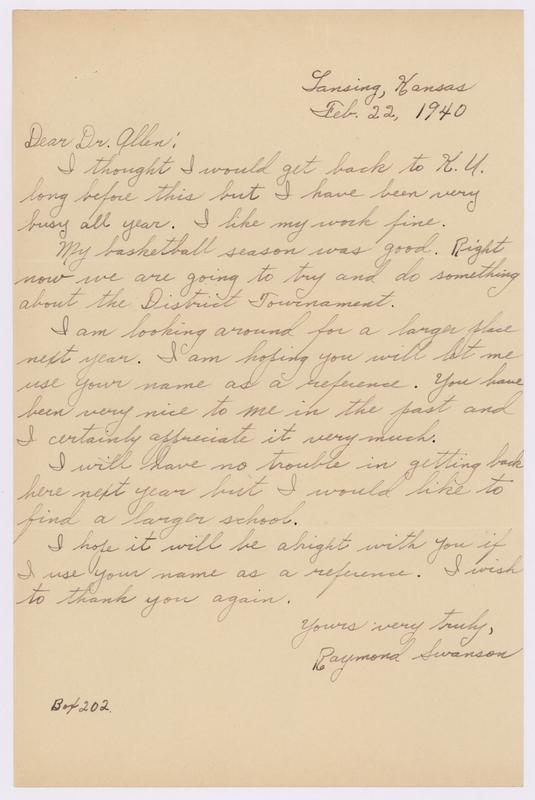 Lansing, Kansas
Feb. 22, 1940
Dear Dr. Allen:
I thought I would get back to K. U.
long before this but I have been very
busy all year. I like my work fine.
My basketball season was good. Right
now we are going to try and do something
about the District Tournament.
I am looking around for a larger place
next year. I am hoping you will let me
use your name as a reference. You have
been very nice to me in the past and
I certainly appreciate it very much.
I will have no trouble in getting back
here next year but I would like to
find a larger school.
I hope it will be alright with you if
I use your name as a reference. I wish
to thank you again.
Yours very truly,
Raymond Swanson
Box 202.